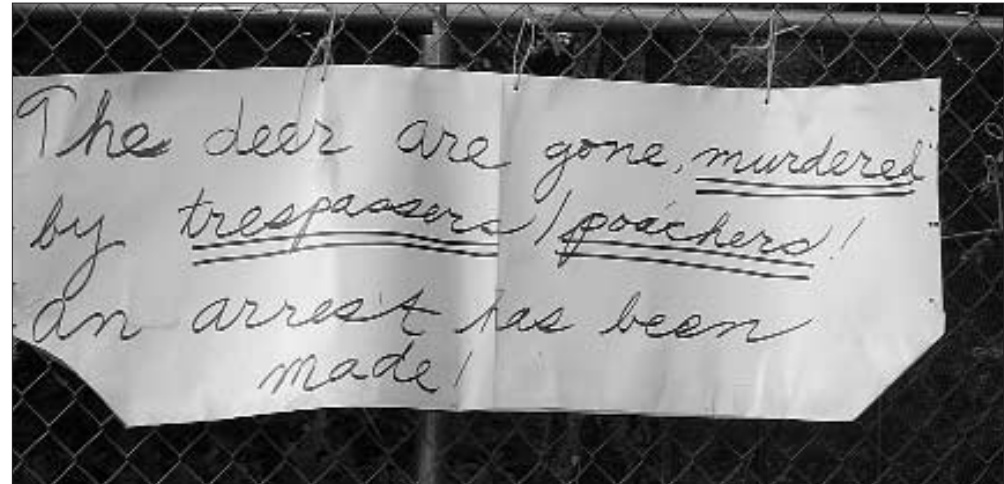 The deer are gone, murdered
by trespassers/poachers!
An arrest has been
made!